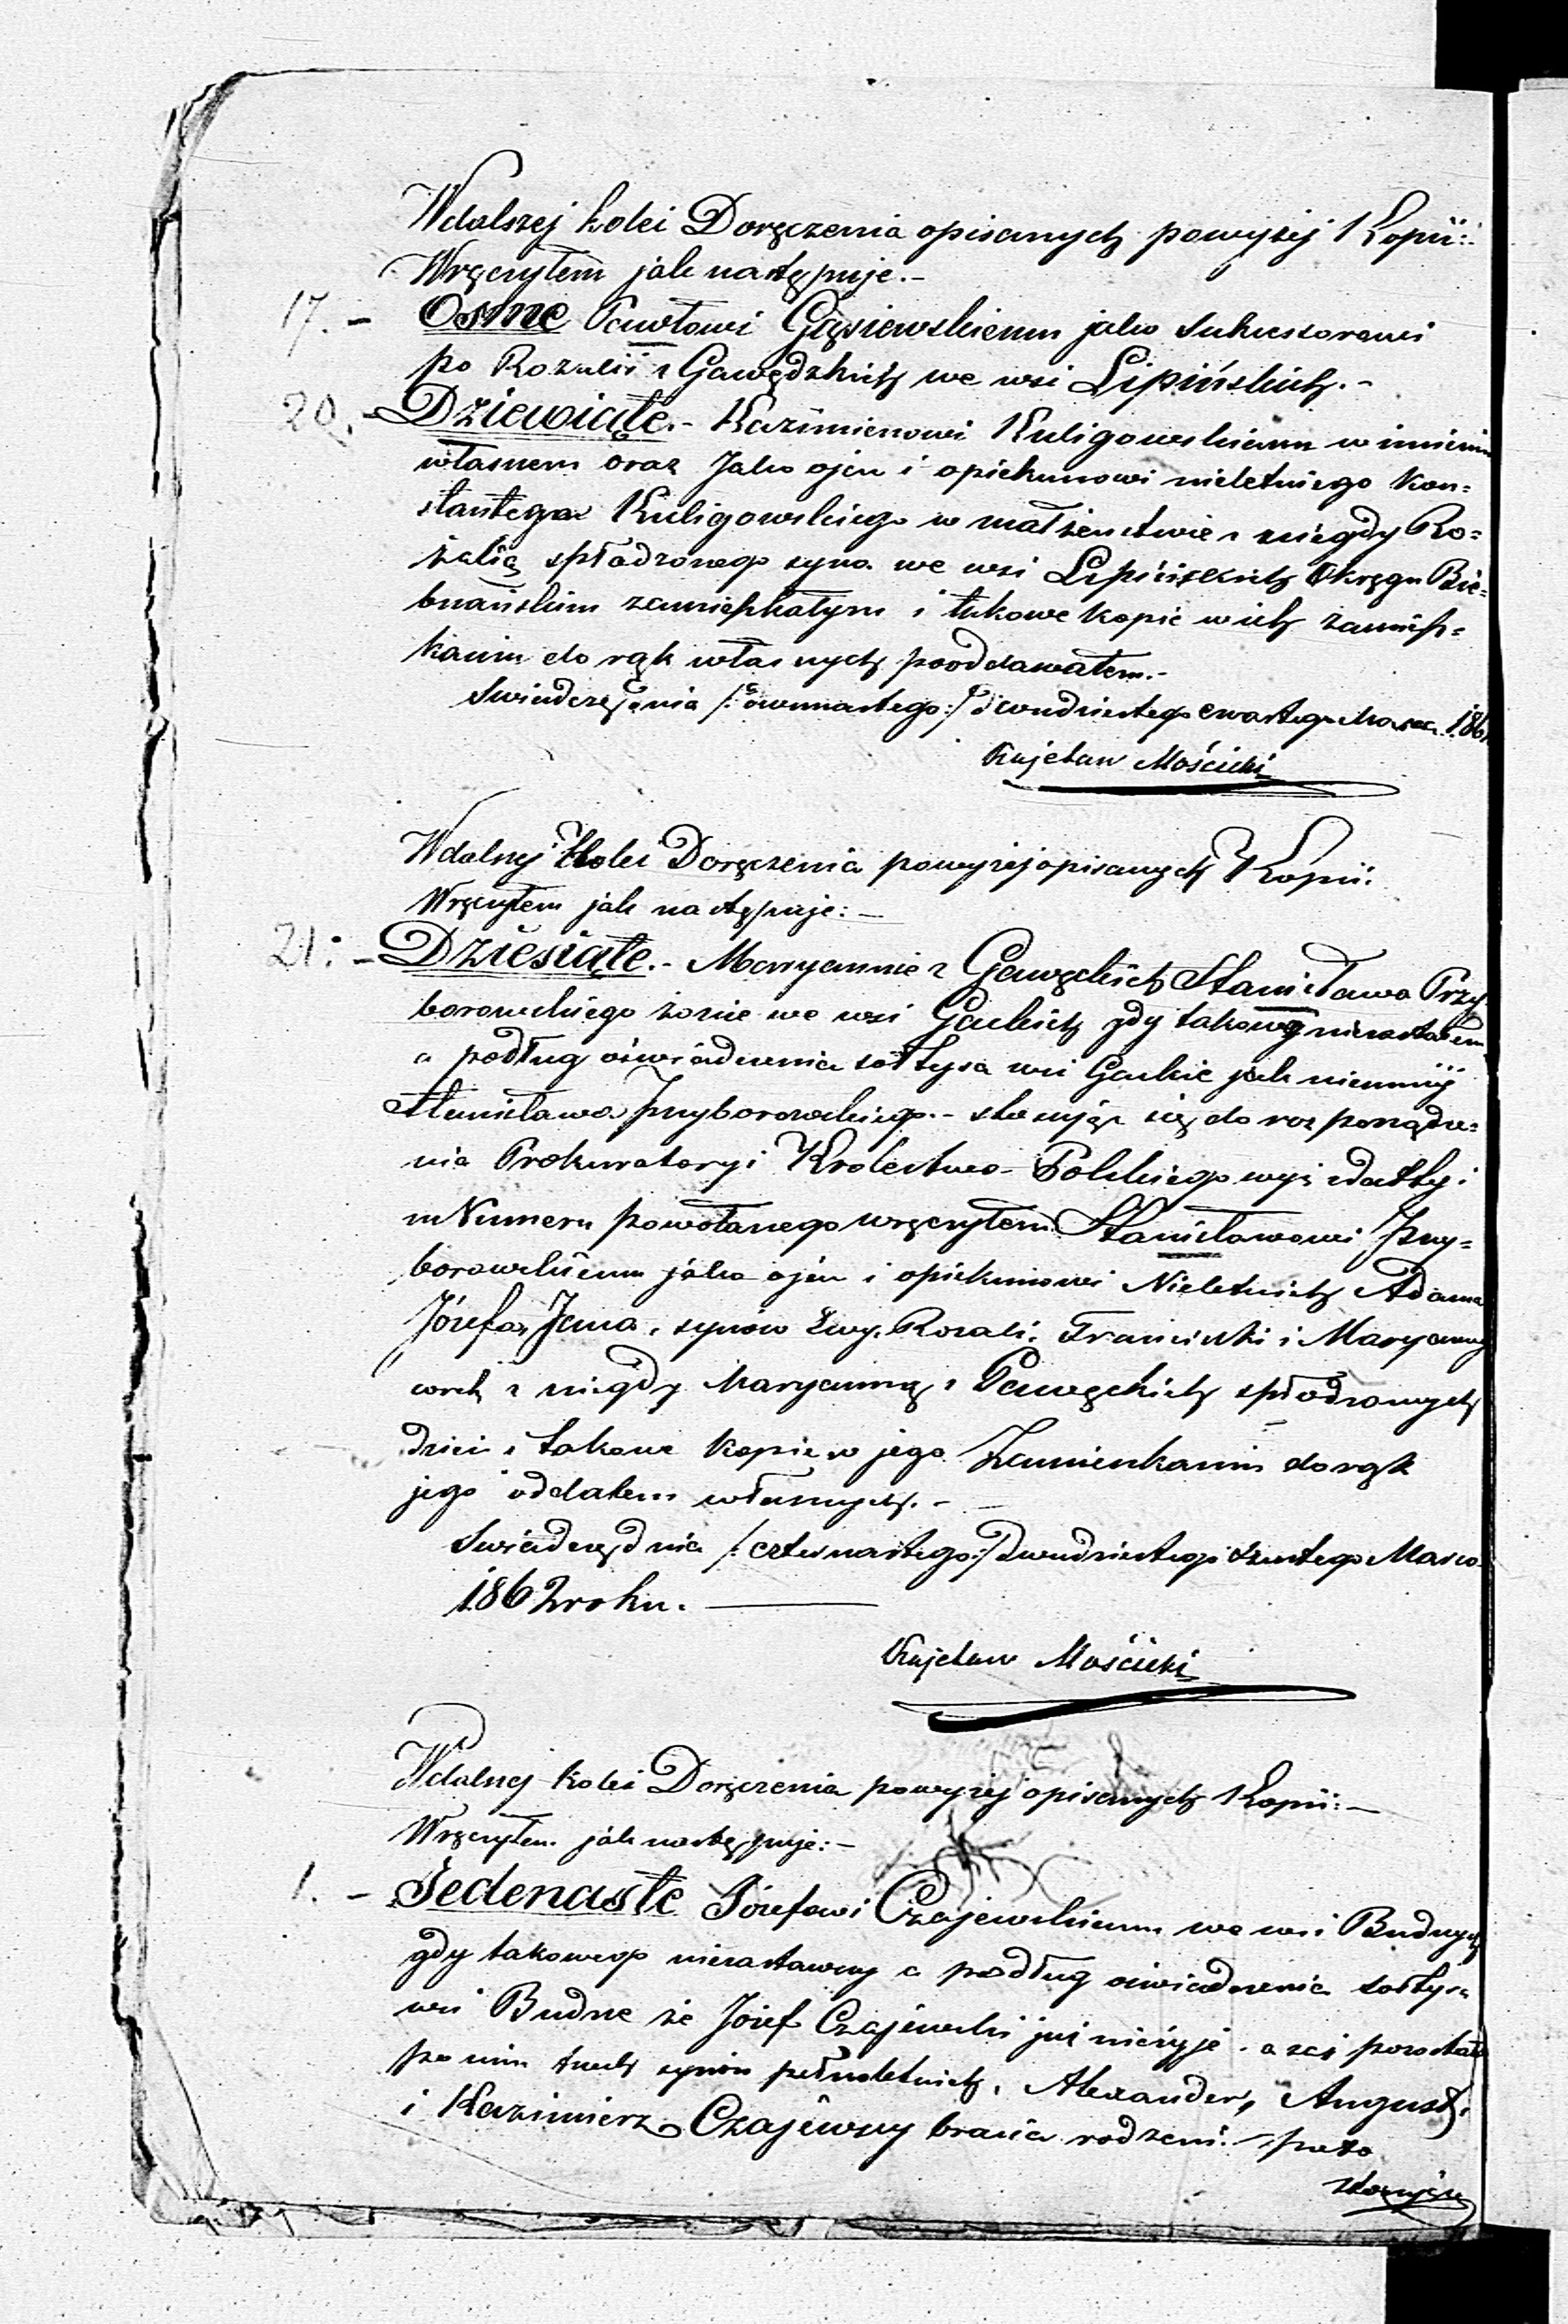 Wdalszej kolei Doręczenia opisanych powyżej Kopii:
Wręczyłem jak następuje.-
17. - Osme Pawłowi Gąsiewskiemu jako Sukcessorowi
po Rozalii z Gawędzkich we wsi Lipińskich.-
20. - Dziewiąte.- Kazimierzowi Kuligowskiemu w imieniu
własnem oraz Jako ojcu i opiekunowi nieletniego Kon=
stantego Kuligowskiego w małżeństwie z niegdy Ro=
zalią spłodzonego syna we wsi Lipińskich Okręgu Bie=
brzańskim zamieszkałym i takowe kopie w ich zamiesz=
kaniu do rąk własnych pooddawałem.-
Swiadczę dnia /: :/ dwudziestego czwartego Marca 186
Kajetan Mościcki
Wdalszej Kolei Doręczenia powyżej opisanych Kopii.
Wręczyłem jak następuje: -
21: - Dziesiąte.- Maryannie z Gawęckich Stanisława Przy
borowskiego żonie we wsi Gackich gdy takowej niezastałem
a podług oświadczenia sołtysa wsi Gackie jak niemniej
Stanisława Przyborowskiego.- stosując się do rozporządze=
nia Prokuratoryi Krolestwa Polskiego wyż z daty i
Numeru powołanego wręczyłem Stanisławowi Przy=
borowskiemu jako ojcu i opiekunowi Nieletnich Adama
Józefa, Jana, synów Ewy, Rozali, Franciszki i Maryanny
córek z niegdy Maryanną z Gawęckich spłodzonych
dzieci i takowe kopie w jego Zamieszkaniu do rąk
jego oddałem własnych.-
Swiadczę dnia /: czternastego:/ dwudziestego szóstego Marca
1862 roku.
Kajetan Mościcki
Wdalszej kolei Doręczenia powyżej opisanych Kopii: -
Wręczyłem jak następuje: -
1. - Jedenaste Józefowi Czajewskiemu we wsi Budnych
gdy takowego niezastawszy a podług oświadczenia sołtysa
wsi Budne że Józef Czajewski już nieżyje. a zaś pozostało
po nim trzech synów pełnoletnich, Alexander, August,
i Kazimierz Czajewscy bracia rodzeni. - przeto
stosując